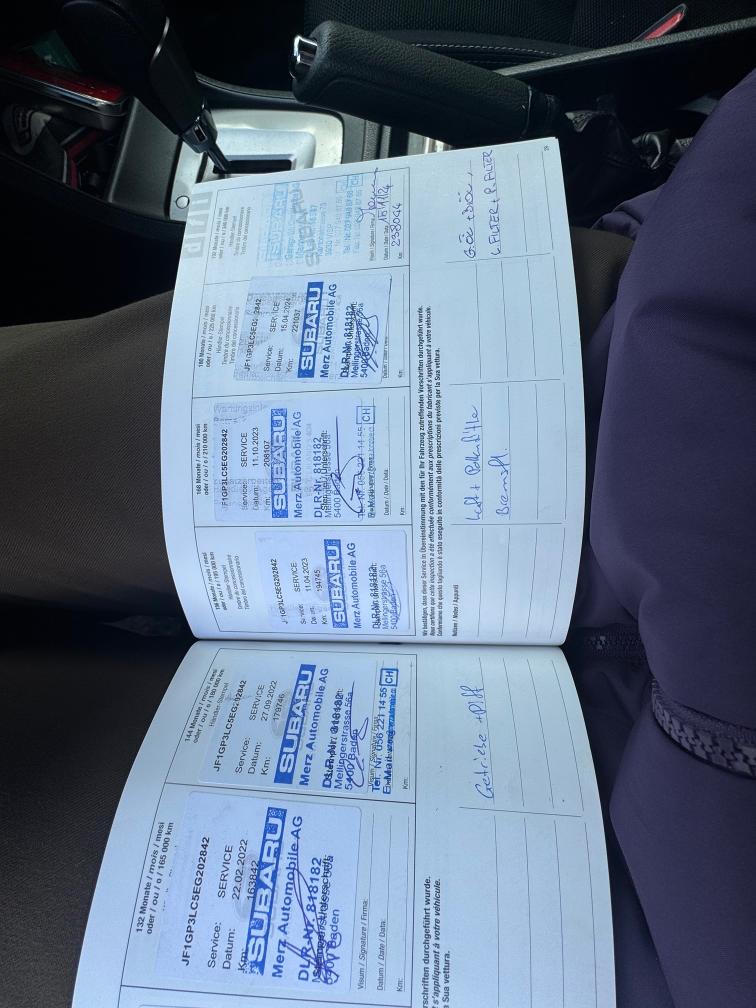 132 Monate / mois / mesi
oder / ou / o / 165 000 km
JF1GP3LC5EG202842
Service: SERVICE
Datum: 22.02.2022
Km: 163842
SUBARU
Merz Automobile AG
DLR-Nr. 818182
5400 Baden
Visum / Signature / Firma:
Datum / Date / Data:
Km:
144 Monate / mois / mesi
oder / ou / o / 180 000 km
Händler-Stempel
JF1GP3LC5EG202842
Service: SERVICE
Datum: 27.09.2022
Km: 179746
SUBARU
Merz Automobile AG
DLR-Nr. 818182
Mellingerstrasse 56a
5400 Baden
Visum / Signature / Firma:
Tel. Nr. 056 221 14 55 CH
E-Mail
Km:
schriften durchgeführt wurde.
s'appliquant à votre véhicule.
a Sua vettura.
Getriebe + Diff
156 Monate / mois / mesi
oder / ou / o / 195 000 km
Händler-Stempel
Timbre du concessionnaire
Timbro del concessionario
JF1GP3LC5EG202842
Service: SERVICE
Datum: 11.04.2023
Km: 194745
SUBARU
Merz Automobile AG
DLR-Nr. 818182
Mellingerstrasse 56a
5400 Baden
168 Monate / mois / mesi
oder / ou / o / 210 000 km
JF1GP3LC5EG202842
Service: SERVICE
Datum: 11.10.2023
Km: 208107
SUBARU
Merz Automobile AG
DLR-Nr. 818182
5400 Baden
Tel. Nr. 056 221 14 55 CH
Datum / Date / Data:
Km:
180 Monate / mois / mesi
oder / ou / o / 225 000 km
Händler-Stempel
Timbre du concessionnaire
Timbro del concessionario
JF1GP3LC5EG202842
Service: SERVICE
Datum: 15.04.2024
Km: 221037
SUBARU
Merz Automobile AG
DLR-Nr. 818182
Mellingerstrasse 56a
5400 Baden
Datum / Date / Data:
Km:
192 Monate / mois / mesi
Händler-Stempel
Timbre du concessionnaire
Timbro del concessionario
SUBARU
CH
Datum / Date / Data: 15.11.24
Km: 238044
Wir bestätigen, dass dieser Service in Übereinstimmung mit den für Ihr Fahrzeug zutreffenden Vorschriften durchgeführt wurde.
Nous certifions que cette inspection a été effectuée conformément aux prescriptions du fabricant s'appliquant à votre véhicule.
Confermiamo che questo tagliando è stato eseguito in conformità delle prescrizioni previste per la Sua vettura.
Notizen / Notes / Appunti
Luft + Pollenfilter
Bremsfl.
L FILTER + P. FILTER